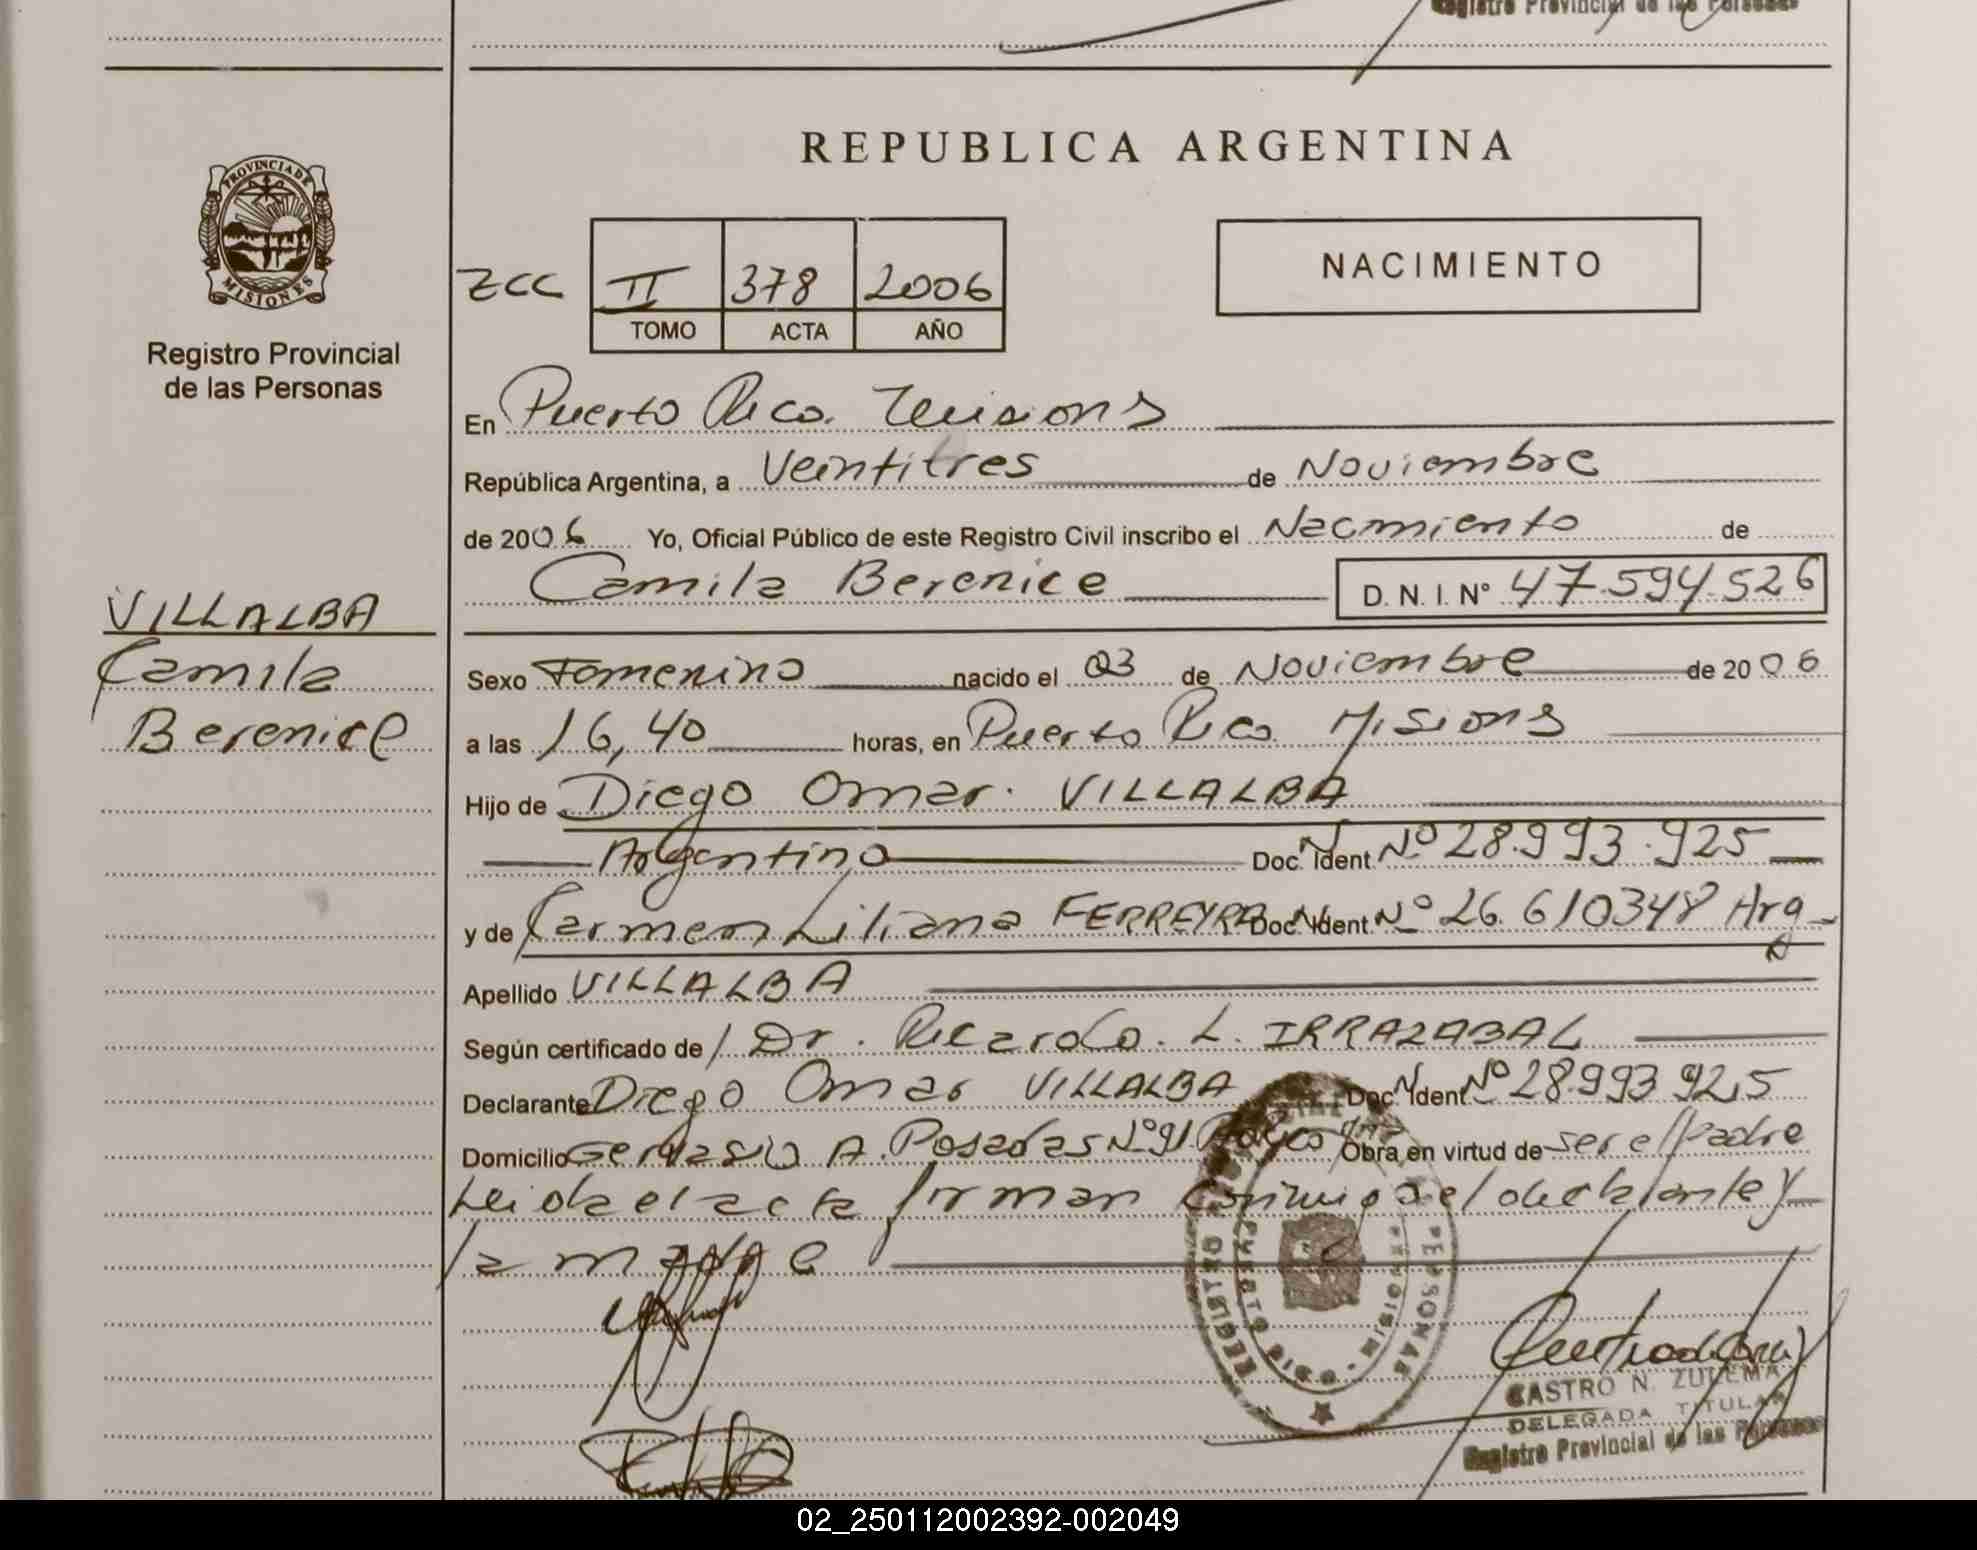 Registro Provincial de las Personas
REPUBLICA ARGENTINA
PROVINCIA DE
MISIONES
Registro Provincial
de las Personas
NACIMIENTO
ZCC II 378 2006
TOMO ACTA AÑO
En Puerto Rico. Misiones
República Argentina, a Veintitres de Noviembre
de 2006 Yo, Oficial Público de este Registro Civil inscribo el Nacimiento de
Camila Berenice D. N. I. N° 47.594.526
VILLALBA
Camila
Berenice
Sexo Femenino nacido el 03 de Noviembre de 2006
a las 16,40 horas, en Puerto Rico Misiones
Hijo de Diego Omar. VILLALBA
Argentino Doc. Ident. Nº 28.993.925
y de Carmen Liliana FERREYRA Doc. Ident. Nº 26.610348 Arg
Apellido VILLALBA
Según certificado de Dr. Ricardo. L. IRRAZABAL
Declarante Diego Omar VILLALBA Doc. Ident Nº 28.993.925
Domicilio Gervasio A. Posadas Nº 91. Obra en virtud de ser el padre
Leida el acta firman conmigo el declarante y
la madre
REGISTRO PERSONAS
PUERTO RICO
CASTRO N. ZULEMA
DELEGADA TITULAR
Registro Provincial de las Personas
02_250112002392-002049